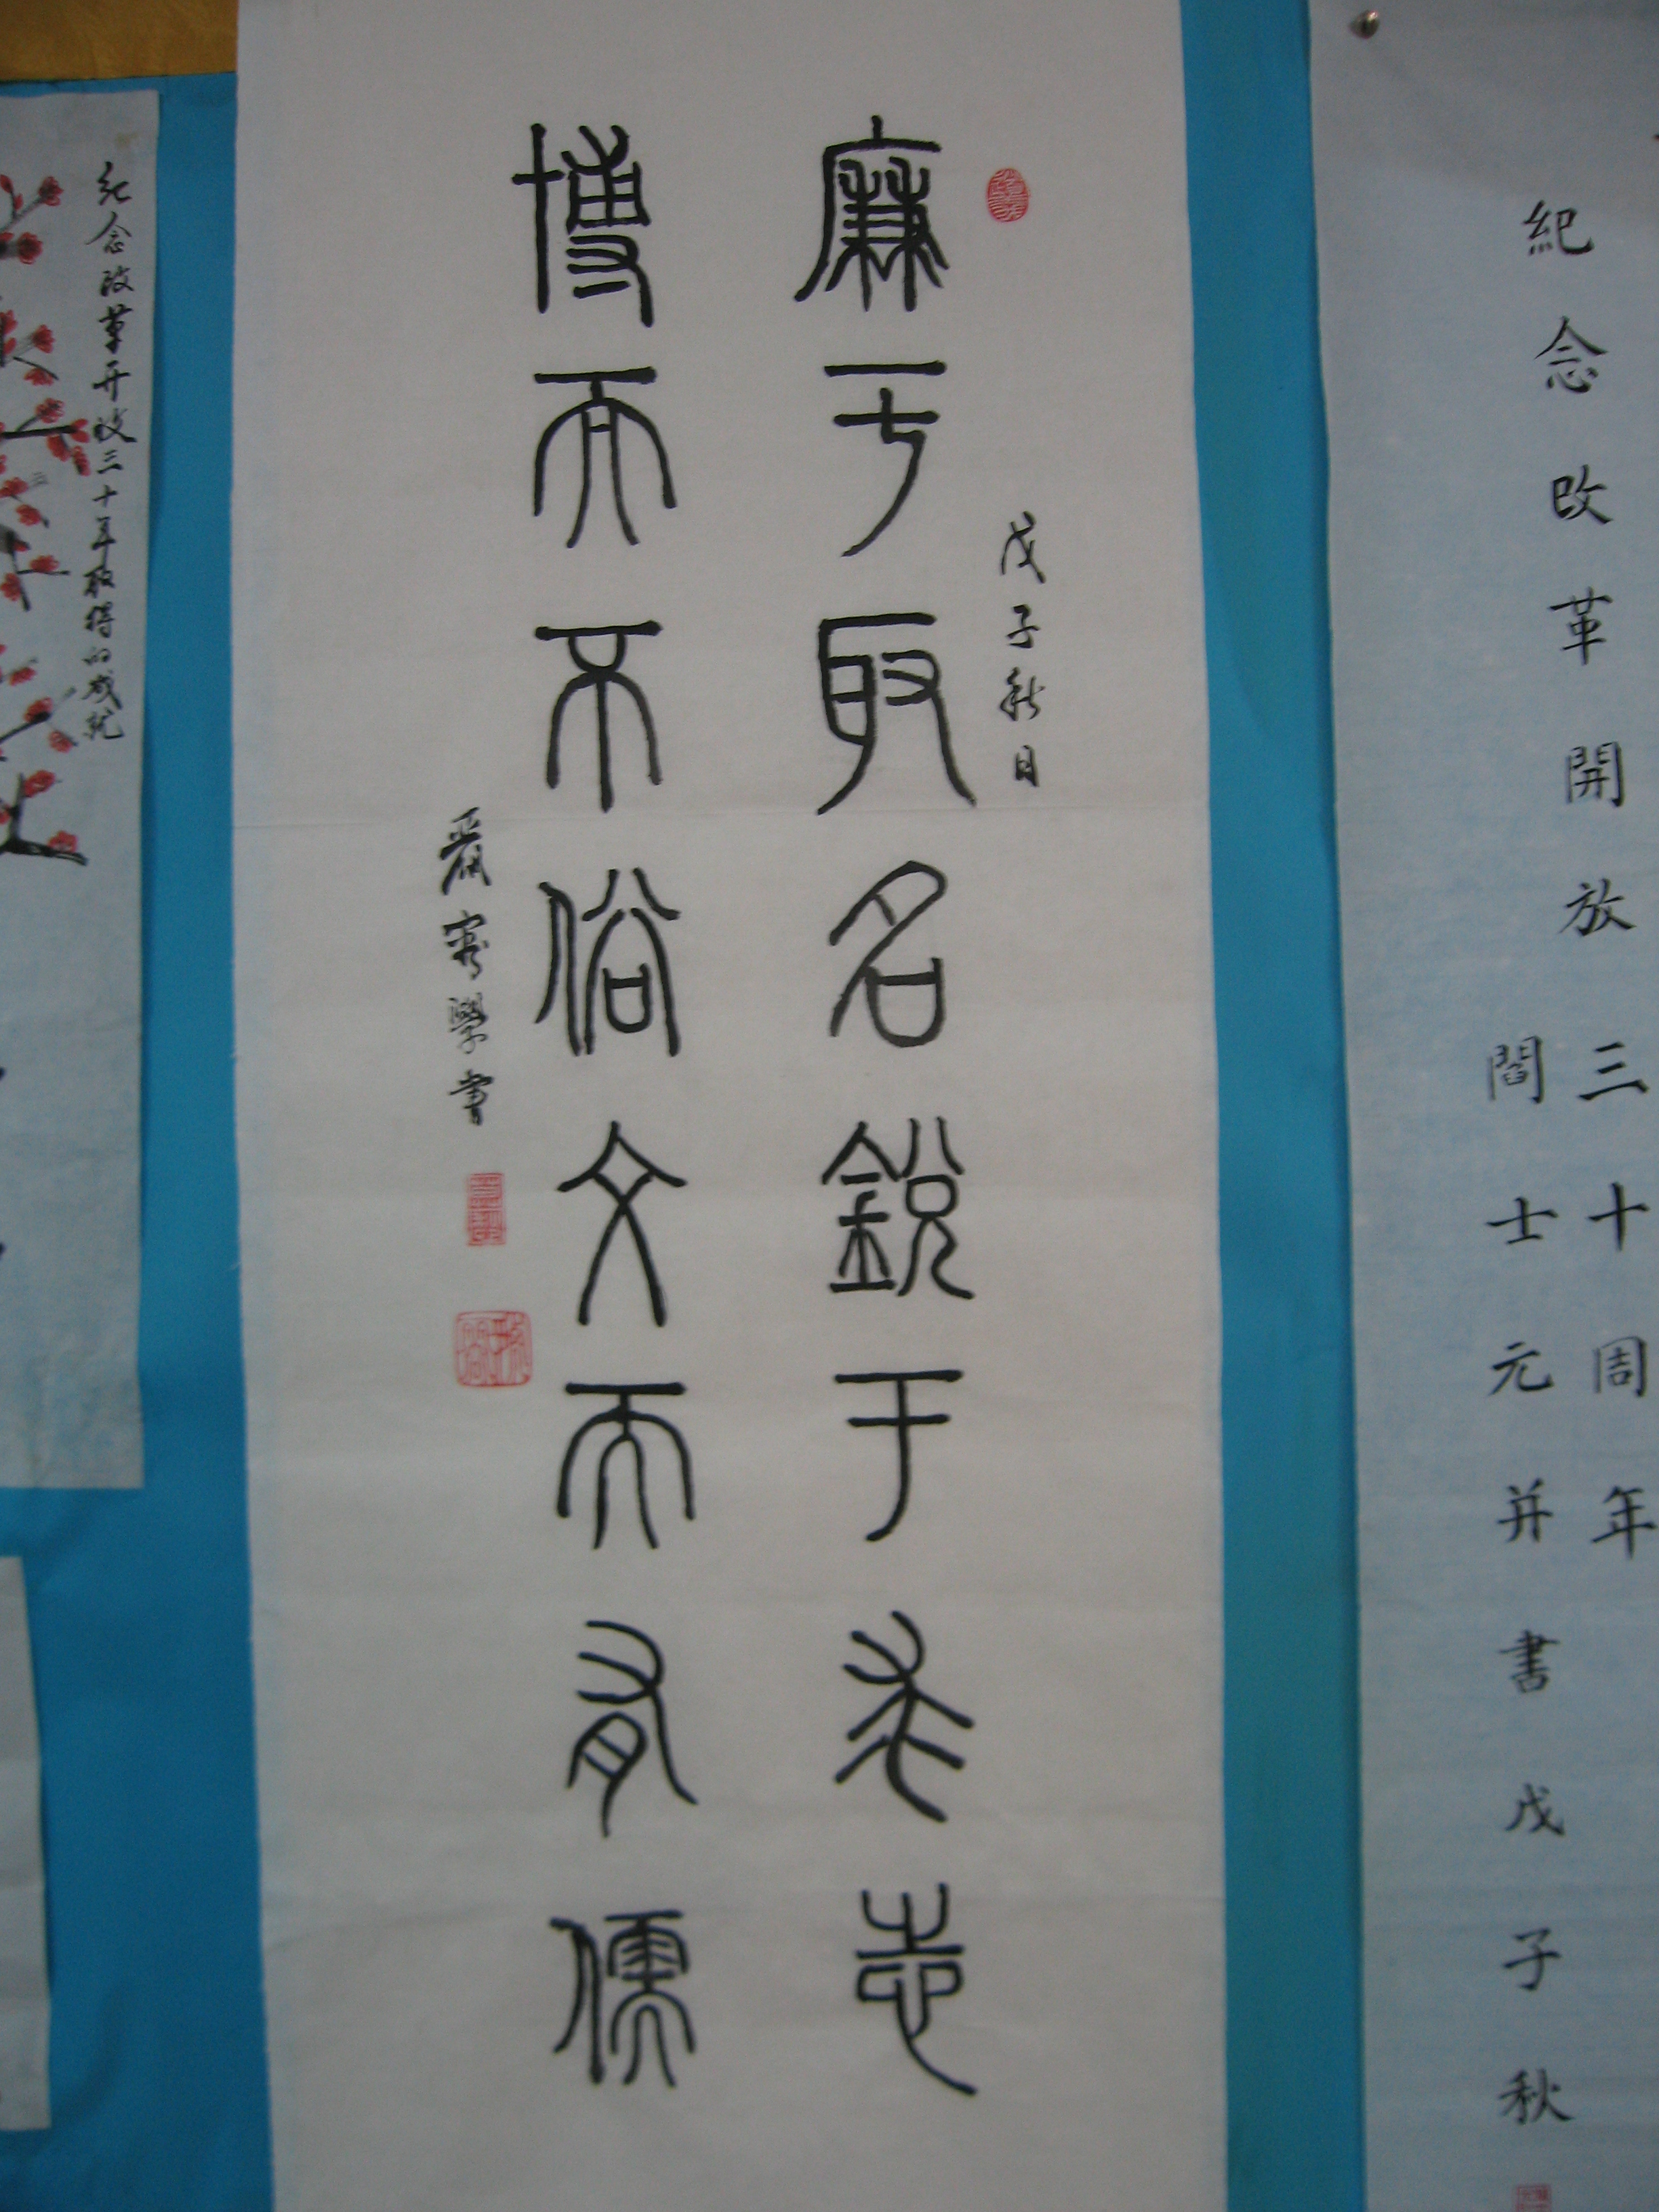 紀念改革開放
三十周年
閻士元并書戊子秋
戊子秋日
廉于取名銳于求志
博而不俗文而有儒
學書
纪念改革开放三十年取得的成就